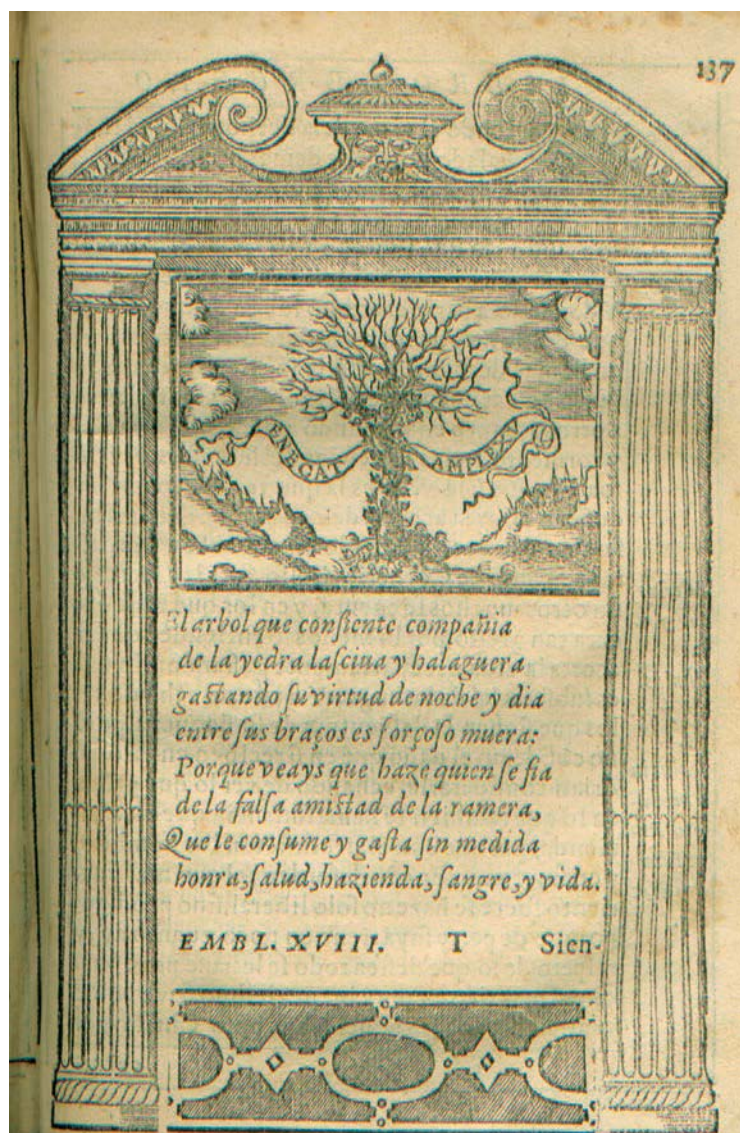 137
ENECAT AMPLEXV
El arbol que conſiente compañia
de la yedra laſciua y halaguera
gaſtando ſu virtud de noche y dia
entre ſus braços es forçoſo muera:
Porque veays que haze quien ſe fia
de la falſa amiſtad de la ramera,
Que le conſume y gaſta ſin medida
honra, ſalud, hazienda, ſangre, y vida.
EMBL. XVIII. T Sien-